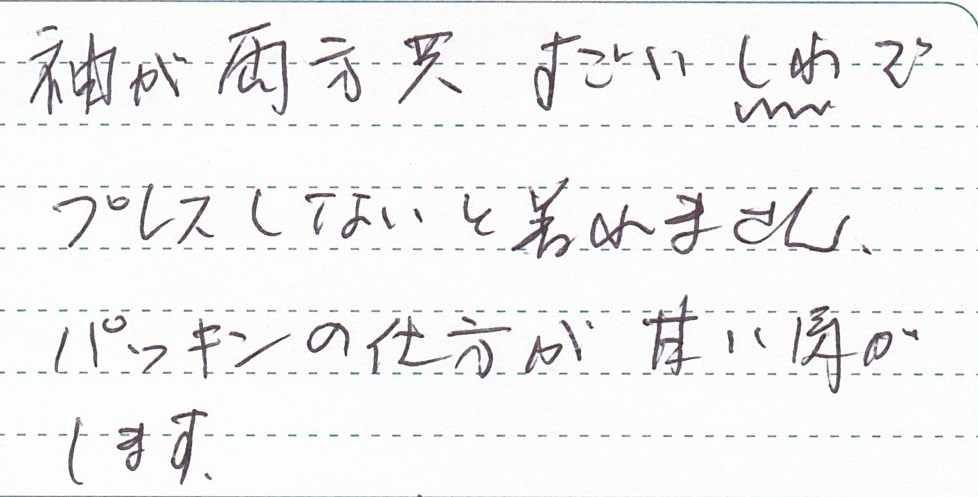 袖が両方共 すごい しわで
プレスしてないと着れません、
パッキンの仕方が 甘い 気が
します。